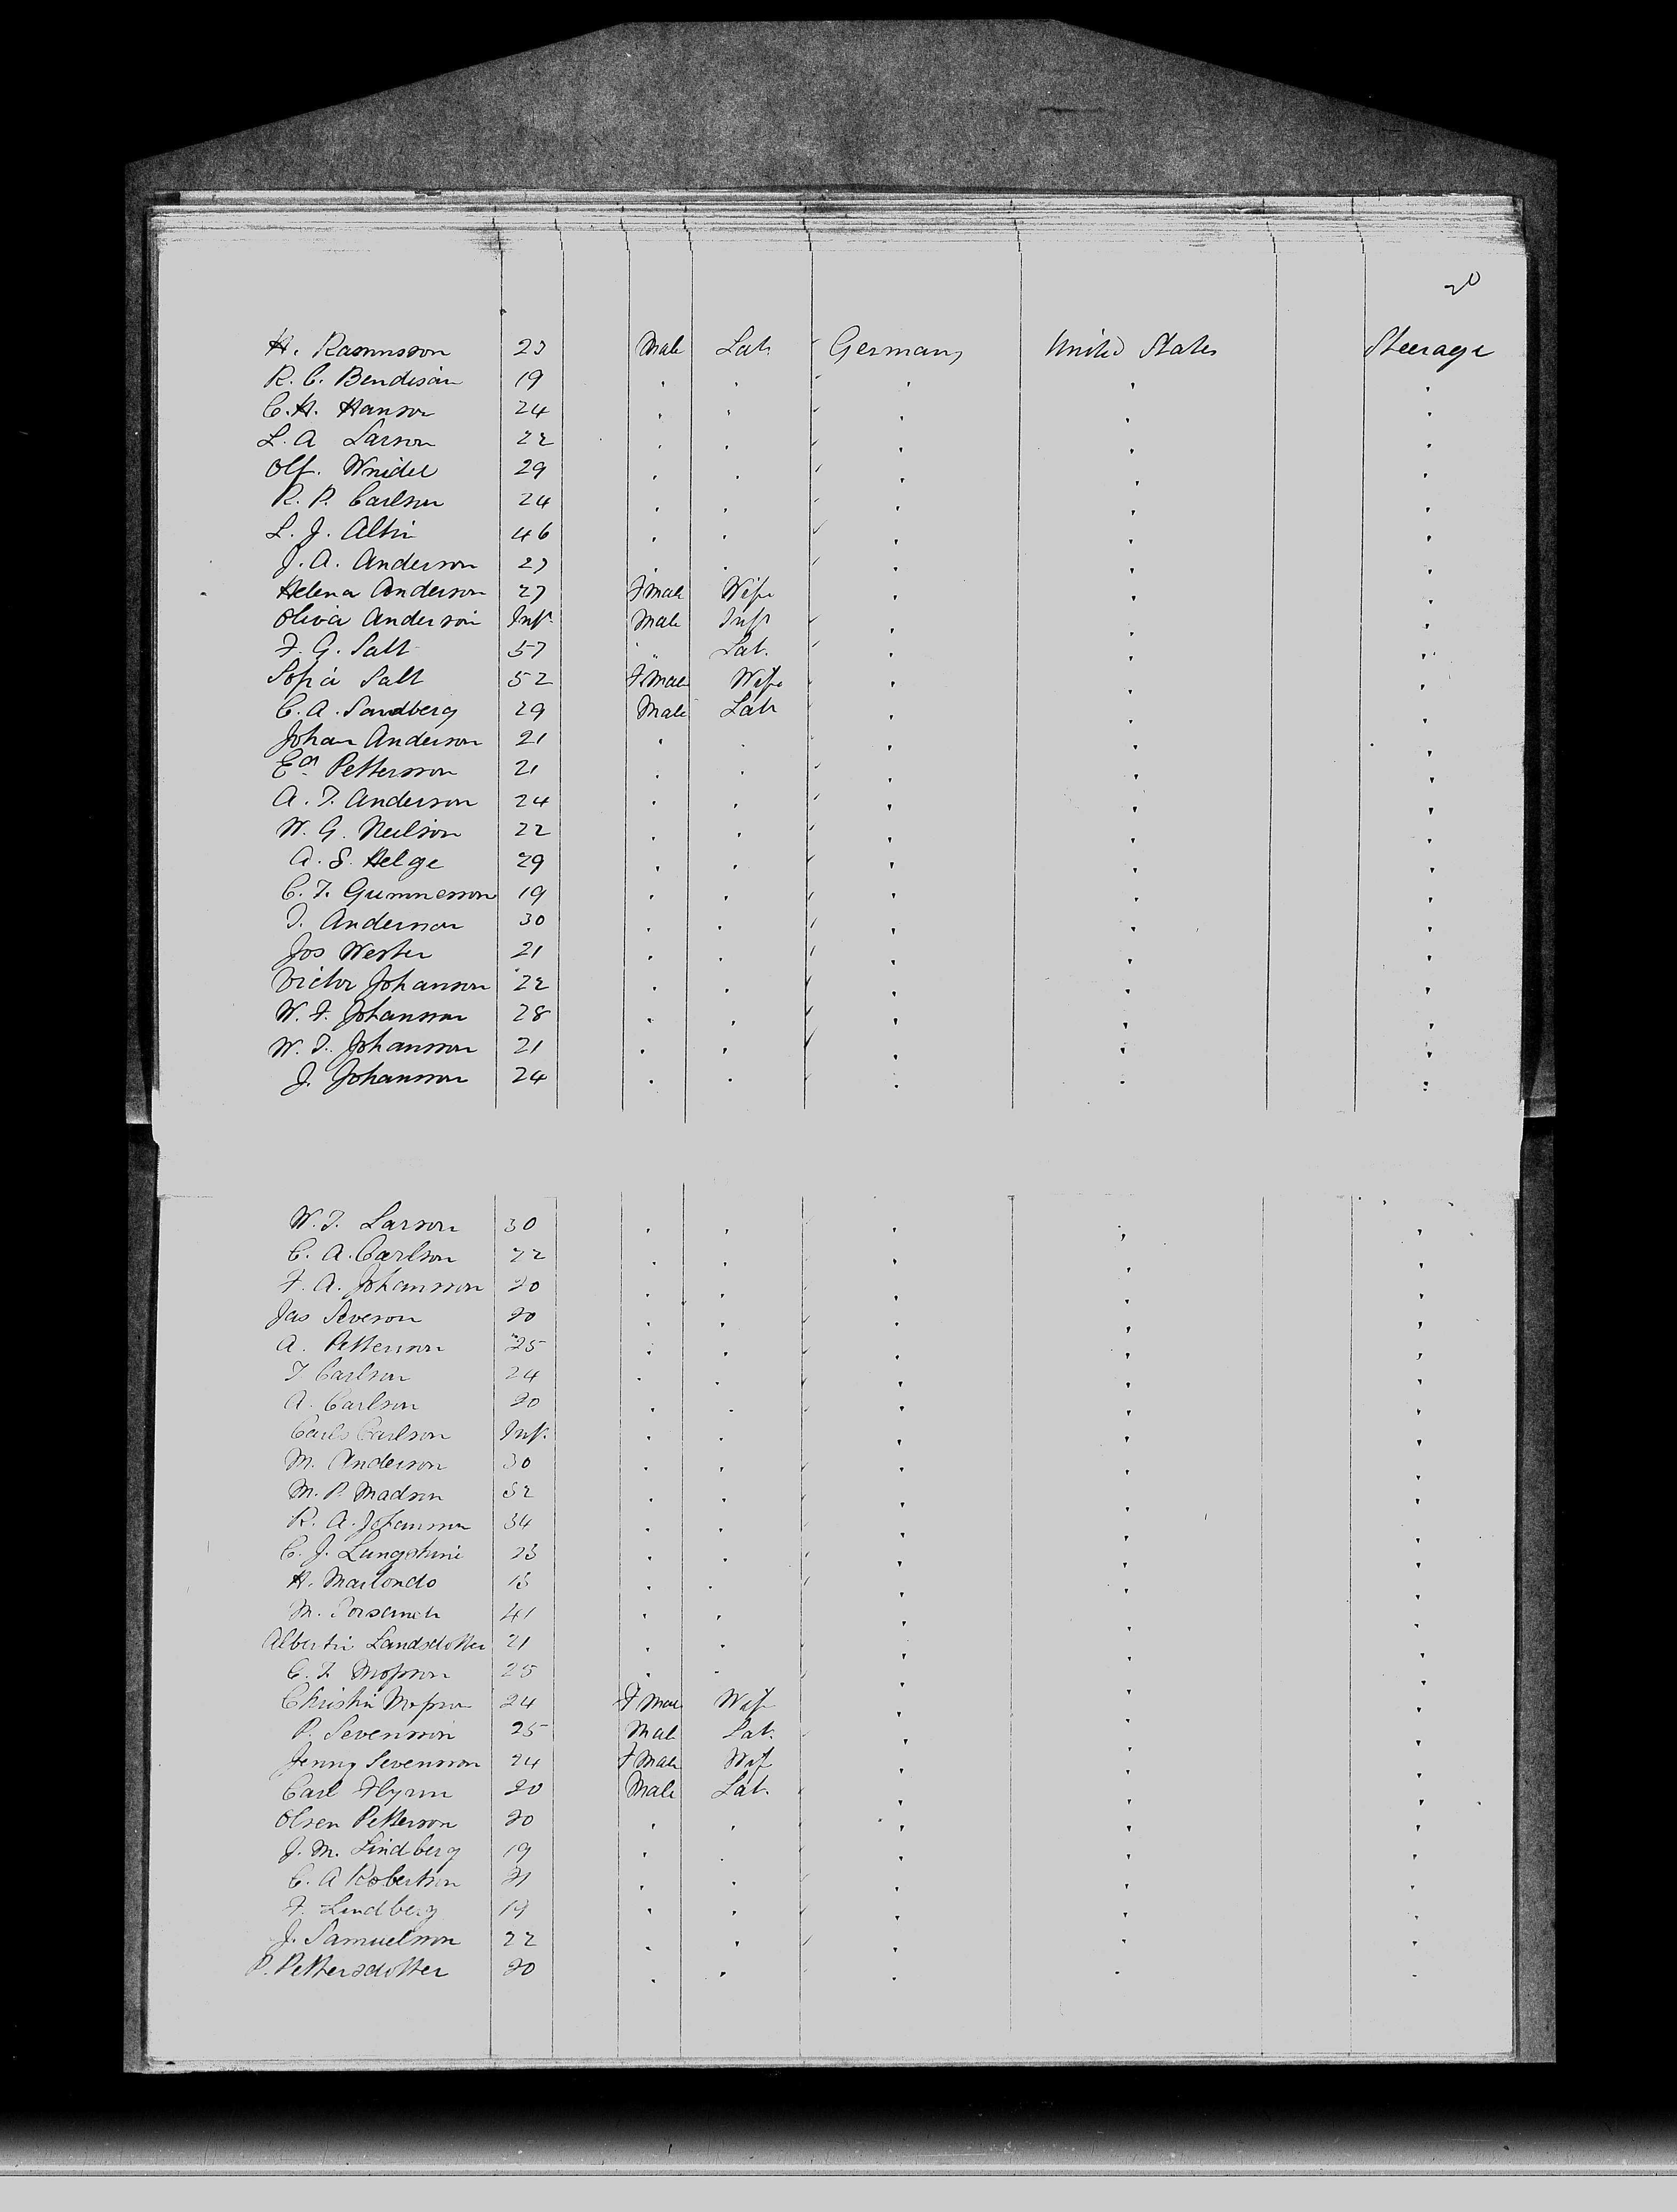 20
H. Rasmusson 23 Male Lab. Germany United States Steerage
R. C. Bendison 19 " " " " "
C. H. Hanson 24 " " " " "
L. A Larson 22 " " " " "
Olf. 29 " " " " "
R. P. Carlson 24 " " " " "
L. J. Altin 46 " " " " "
J. A. Anderson 27 " " " " "
Helena Anderson 27 Fmale Wife " " "
Olivia Anderson Inft. Male Inft " " "
F. G. Salt 57 " Lab. " " "
Sofia Salt 52 Fmale Wife " " "
C. A. Sandberg 29 Male Lab " " "
Johan Anderson 21 " " " " "
Ed. Pettersson 21 " " " " "
A. T. Anderson 24 " " " " "
W. G. Neilson 22 " " " " "
A. S. Helge 29 " " " " "
C. T. Gummesson 19 " " " " "
T. Anderson 30 " " " " "
Jos Wester 21 " " " " "
Victor Johanson 22 " " " " "
W. F. Johansson 28 " " " " "
W. T. Johansson 21 " " " " "
J. Johansson 24 " " " " "
W. T. Larson 30 " " " " "
C. A. Carlson 22 " " " " "
F. A. Johansson 20 " " " " "
Jas Severson 20 " " " " "
A. Petterson 25 " " " " "
T Carlson 24 " " " " "
A. Carlson 20 " " " " "
Carls Carlson Inft. " " " " "
M. Anderson 30 " " " " "
M. P. Madson 32 " " " " "
R. A. Johansson 34 " " " " "
C. J. 23 " " " " "
H. Marlondo " " " " "
M. 41 " " " " "
Albertin Landsdotter 21 " " " " "
C. F. 25 " " " " "
Christin 24 Fmale Wife " " "
P. Sevensson 25 Male Lab. " " "
Jenny Sevensson 24 Fmale Wif " " "
Carl Flynn 20 Male Lab. " " "
Olsen Petterson 20 " " " " "
J. M. Lindberg 19 " " " " "
C. A Robertson 21 " " " " "
F. Lindberg 19 " " " " "
J. Samuelson 22 " " " " "
P. Pettersdotter 20 " " " " "